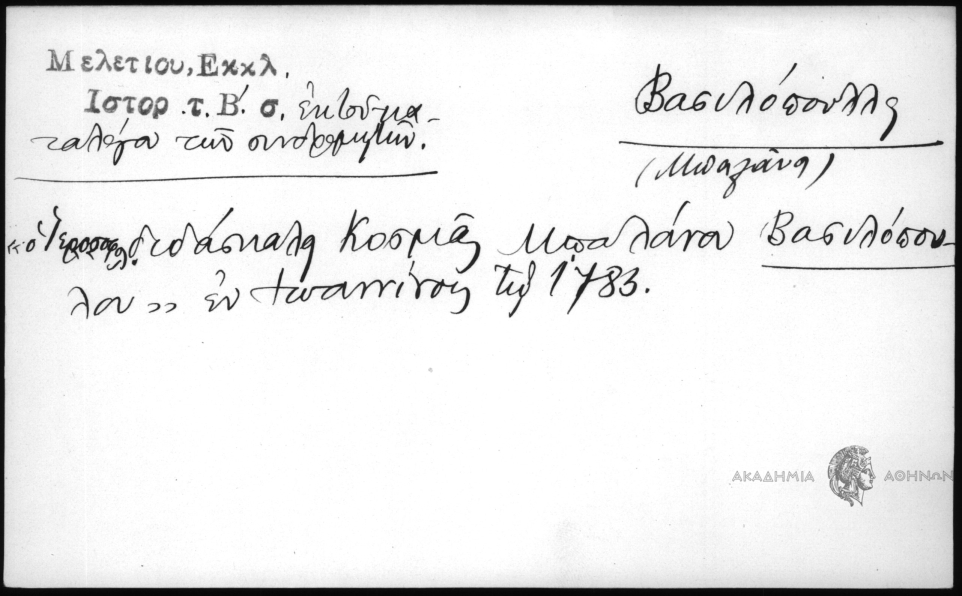 Μελετιου, Εκκλ.
Ιστορ .τ. Β'. σ. ἐκ τοῦ κα-
ταλόγου τῶν συνδρομητῶν.
Βασιλόπουλος
(Μπαλάνος)
«ὁ Ἱεροσο διδάσκαλος Κοσμᾶς Μπαλάνου Βασιλόπου-
λου» ἐν Ἰωαννίνοις τῷ 1783.
ΑΚΑΔΗΜΙΑ ΑΘΗΝΩΝ